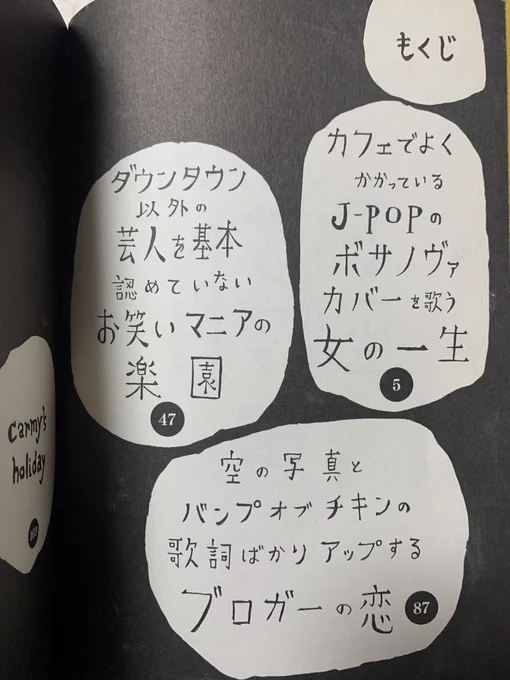 もくじ
カフェでよく
かかっている
J-POPの
ボサノヴァ
カバーを歌う
女の一生
5
ダウンタウン
以外の
芸人を基本
認めていない
お笑いマニアの
楽園
47
空の写真と
バンプオブチキンの
歌詞ばかりアップする
ブロガーの恋
87
carmy's
holiday